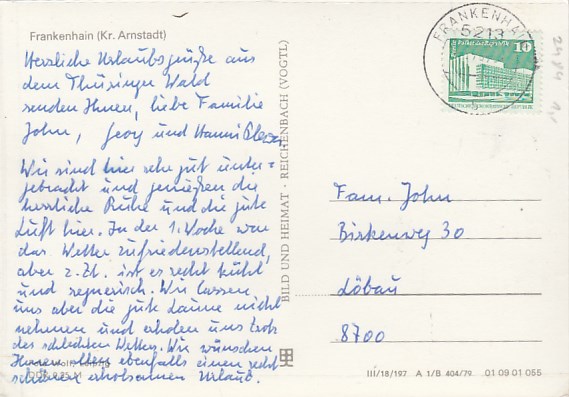 Frankenhain (Kr. Arnstadt)
Herzliche Urlaubsgrüße aus
dem Thüringer Wald
senden Ihnen, liebe Familie
John, Georg und Hanni
Wir sind hier sehr gut unter=
gebracht und genießen die
herrliche Ruhe und die gute
Luft hier. In der 1. Woche war
das Wetter zufriedenstellend,
aber z. Zt. ist es recht kühl
und regnerisch. Wir lassen
uns aber die gute Laune nicht
nehmen und erholen uns trotz
des schlechten Wetters. Wir wünschen
Ihnen allen ebenfalls einen recht
schönen erholsamen Urlaub.
BILD UND HEIMAT · REICHENBACH (VOGTL)
FRANKENHAIN
5213
10
Fam. John
Birkenweg 30
Löbau
8700
III/18/197 A 1/B 404/79 01 09 01 055